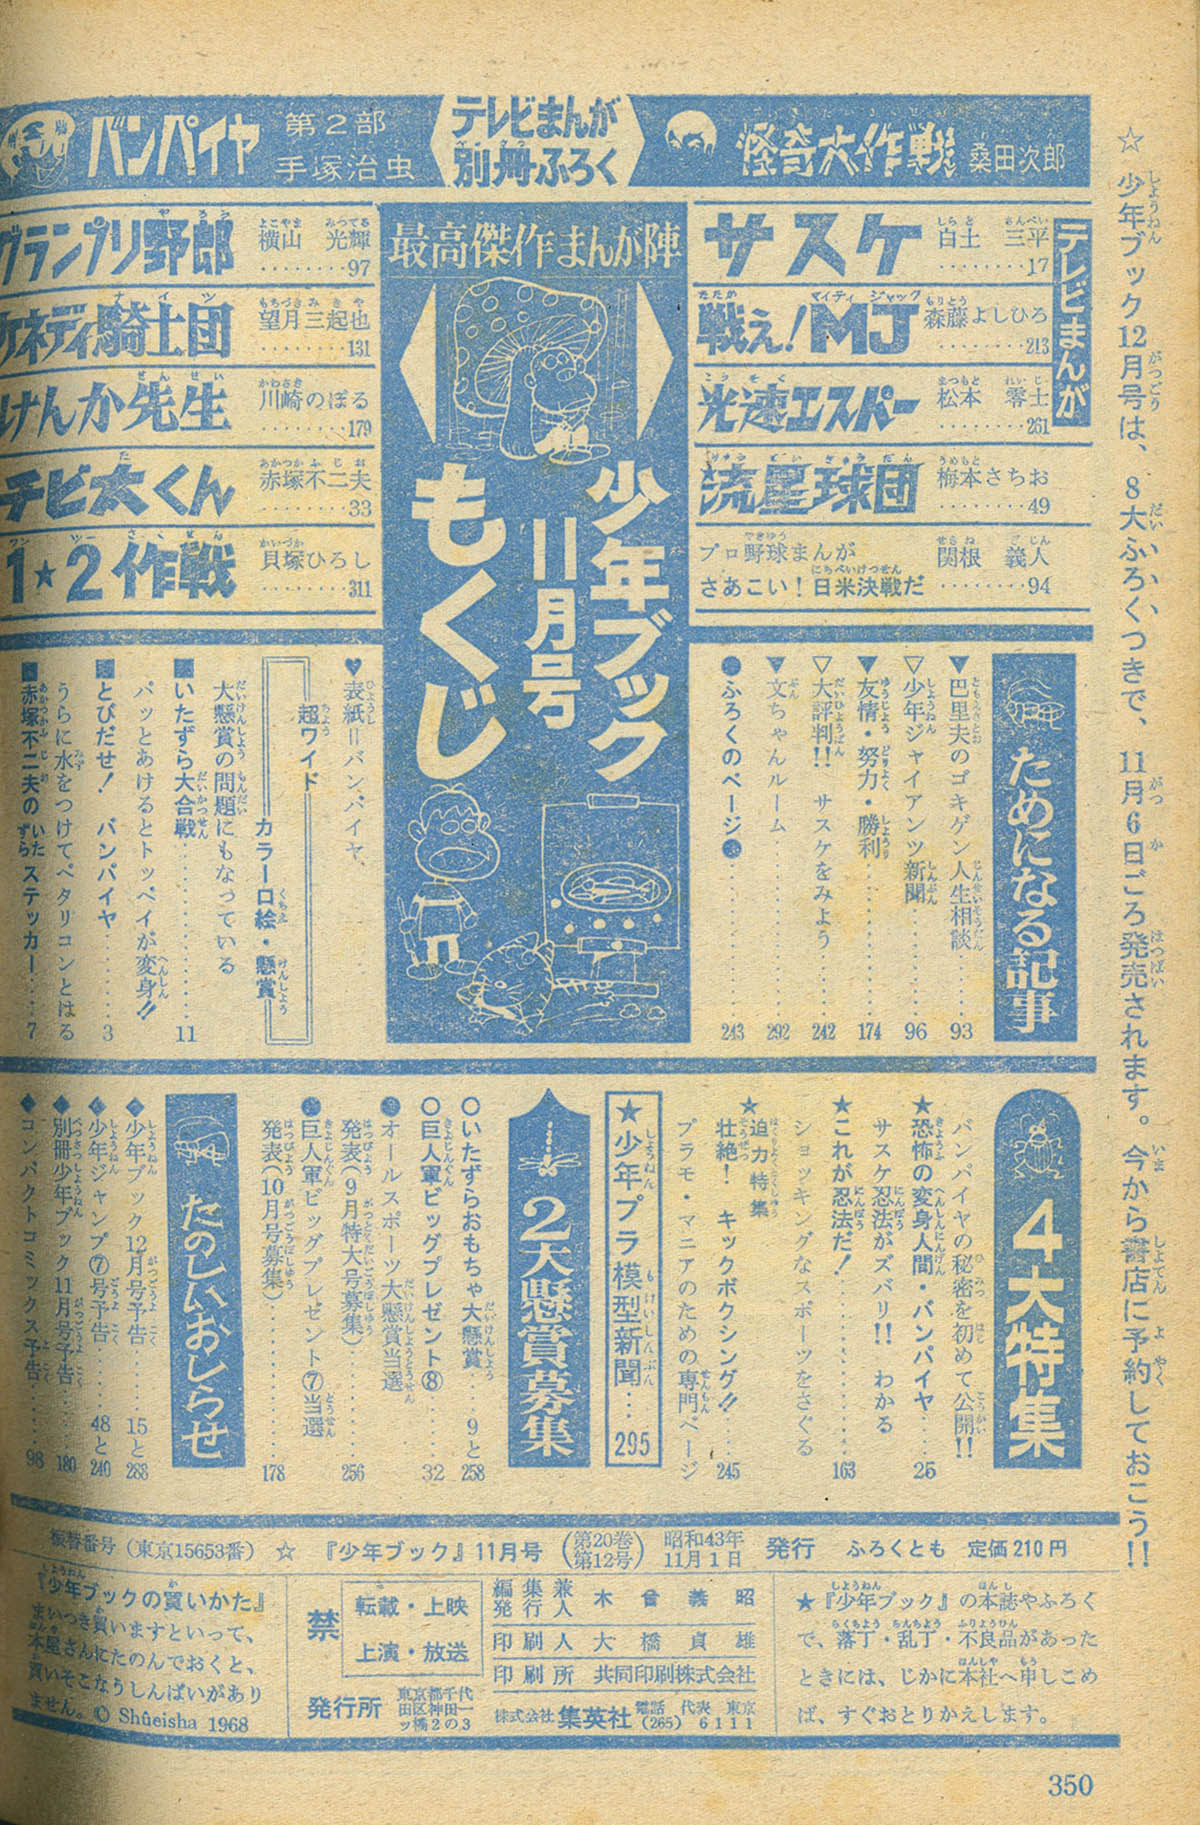 ☆少年ブック12月号は、8大ふろくつきで、11月6日ごろ発売されます。今から書店に予約しておこう!!
テレビまんが
別冊ふろく
怪奇大作戦 桑田次郎
バンパイヤ 第2部
手塚治虫
テレビまんが
サスケ 白土三平 ………17
戦え!MJ 森藤よしひろ ………213
光速エスパー 松本零士 ………261
流星球団 梅本さちお ………49
プロ野球まんが
さあこい!日米決戦だ 関根義人 ………94
最高傑作まんが陣
少年ブック
11月号
もくじ
グランプリ野郎 横山光輝 ………97
ケネディ騎士団 望月三起也 ………131
けんか先生 川崎のぼる ………179
チビ太くん 赤塚不二夫 ………33
1★2作戦 貝塚ひろし ………311
ためになる記事
▼巴里夫のゴキゲン人生相談………93
▽少年ジャイアンツ新聞………96
▼友情・努力・勝利………174
▽大評判!! サスケをみよう………242
▼文ちゃんルーム………292
●ふろくのページ●………243
♥表紙=バンパイヤ
超ワイド
カラー口絵・懸賞
大懸賞の問題にもなっている
■いたずら大合戦………11
パッとあけるとトッペイが変身!!
■とびだせ! バンパイヤ………3
うらに水をつけてペタリコンとはる
■赤塚不二夫のいたずらステッカー………7
4大特集
バンパイヤの秘密を初めて公開!!
★恐怖の変身人間・バンパイヤ………25
サスケ忍法がズバリ!! わかる
★これが忍法だ!………163
ショッキングなスポーツをさぐる
★迫力特集
壮絶! キックボクシング!!………245
プラモ・マニアのための専門ページ
★少年プラ模型新聞………295
2大懸賞募集
○いたずらおもちゃ大懸賞………9と258
○巨人軍ビッグプレゼント⑧………32
●オールスポーツ大懸賞当選
発表(9月特大号募集)………256
●巨人軍ビッグプレゼント⑦当選
発表(10月号募集)………178
たのしいおしらせ
◆少年ブック12月号予告………15と288
◆少年ジャンプ⑦号予告………48と240
◆別冊少年ブック11月号予告………180
◆コンパクトコミックス予告………98
振替番号(東京15653番) ☆ 『少年ブック』11月号 (第20巻第12号) 昭和43年11月1日 発行 ふろくとも 定価210円
★『少年ブック』の本誌やふろく
で、落丁・乱丁・不良品があった
ときには、じかに本社へ申しこめ
ば、すぐおとりかえします。
編集兼発行人 木曾義昭
印刷人 大橋貞雄
印刷所 共同印刷株式会社
株式会社 集英社 電話(265) 代表 東京6111
禁 転載・上映
上演・放送
発行所 東京都千代田区神田一ツ橋2の3
『少年ブックの買いかた』
まいつき買いますといって、
本屋さんにたのんでおくと、
買いそこなうしんぱいがあり
ません。© Shûeisha 1968
350